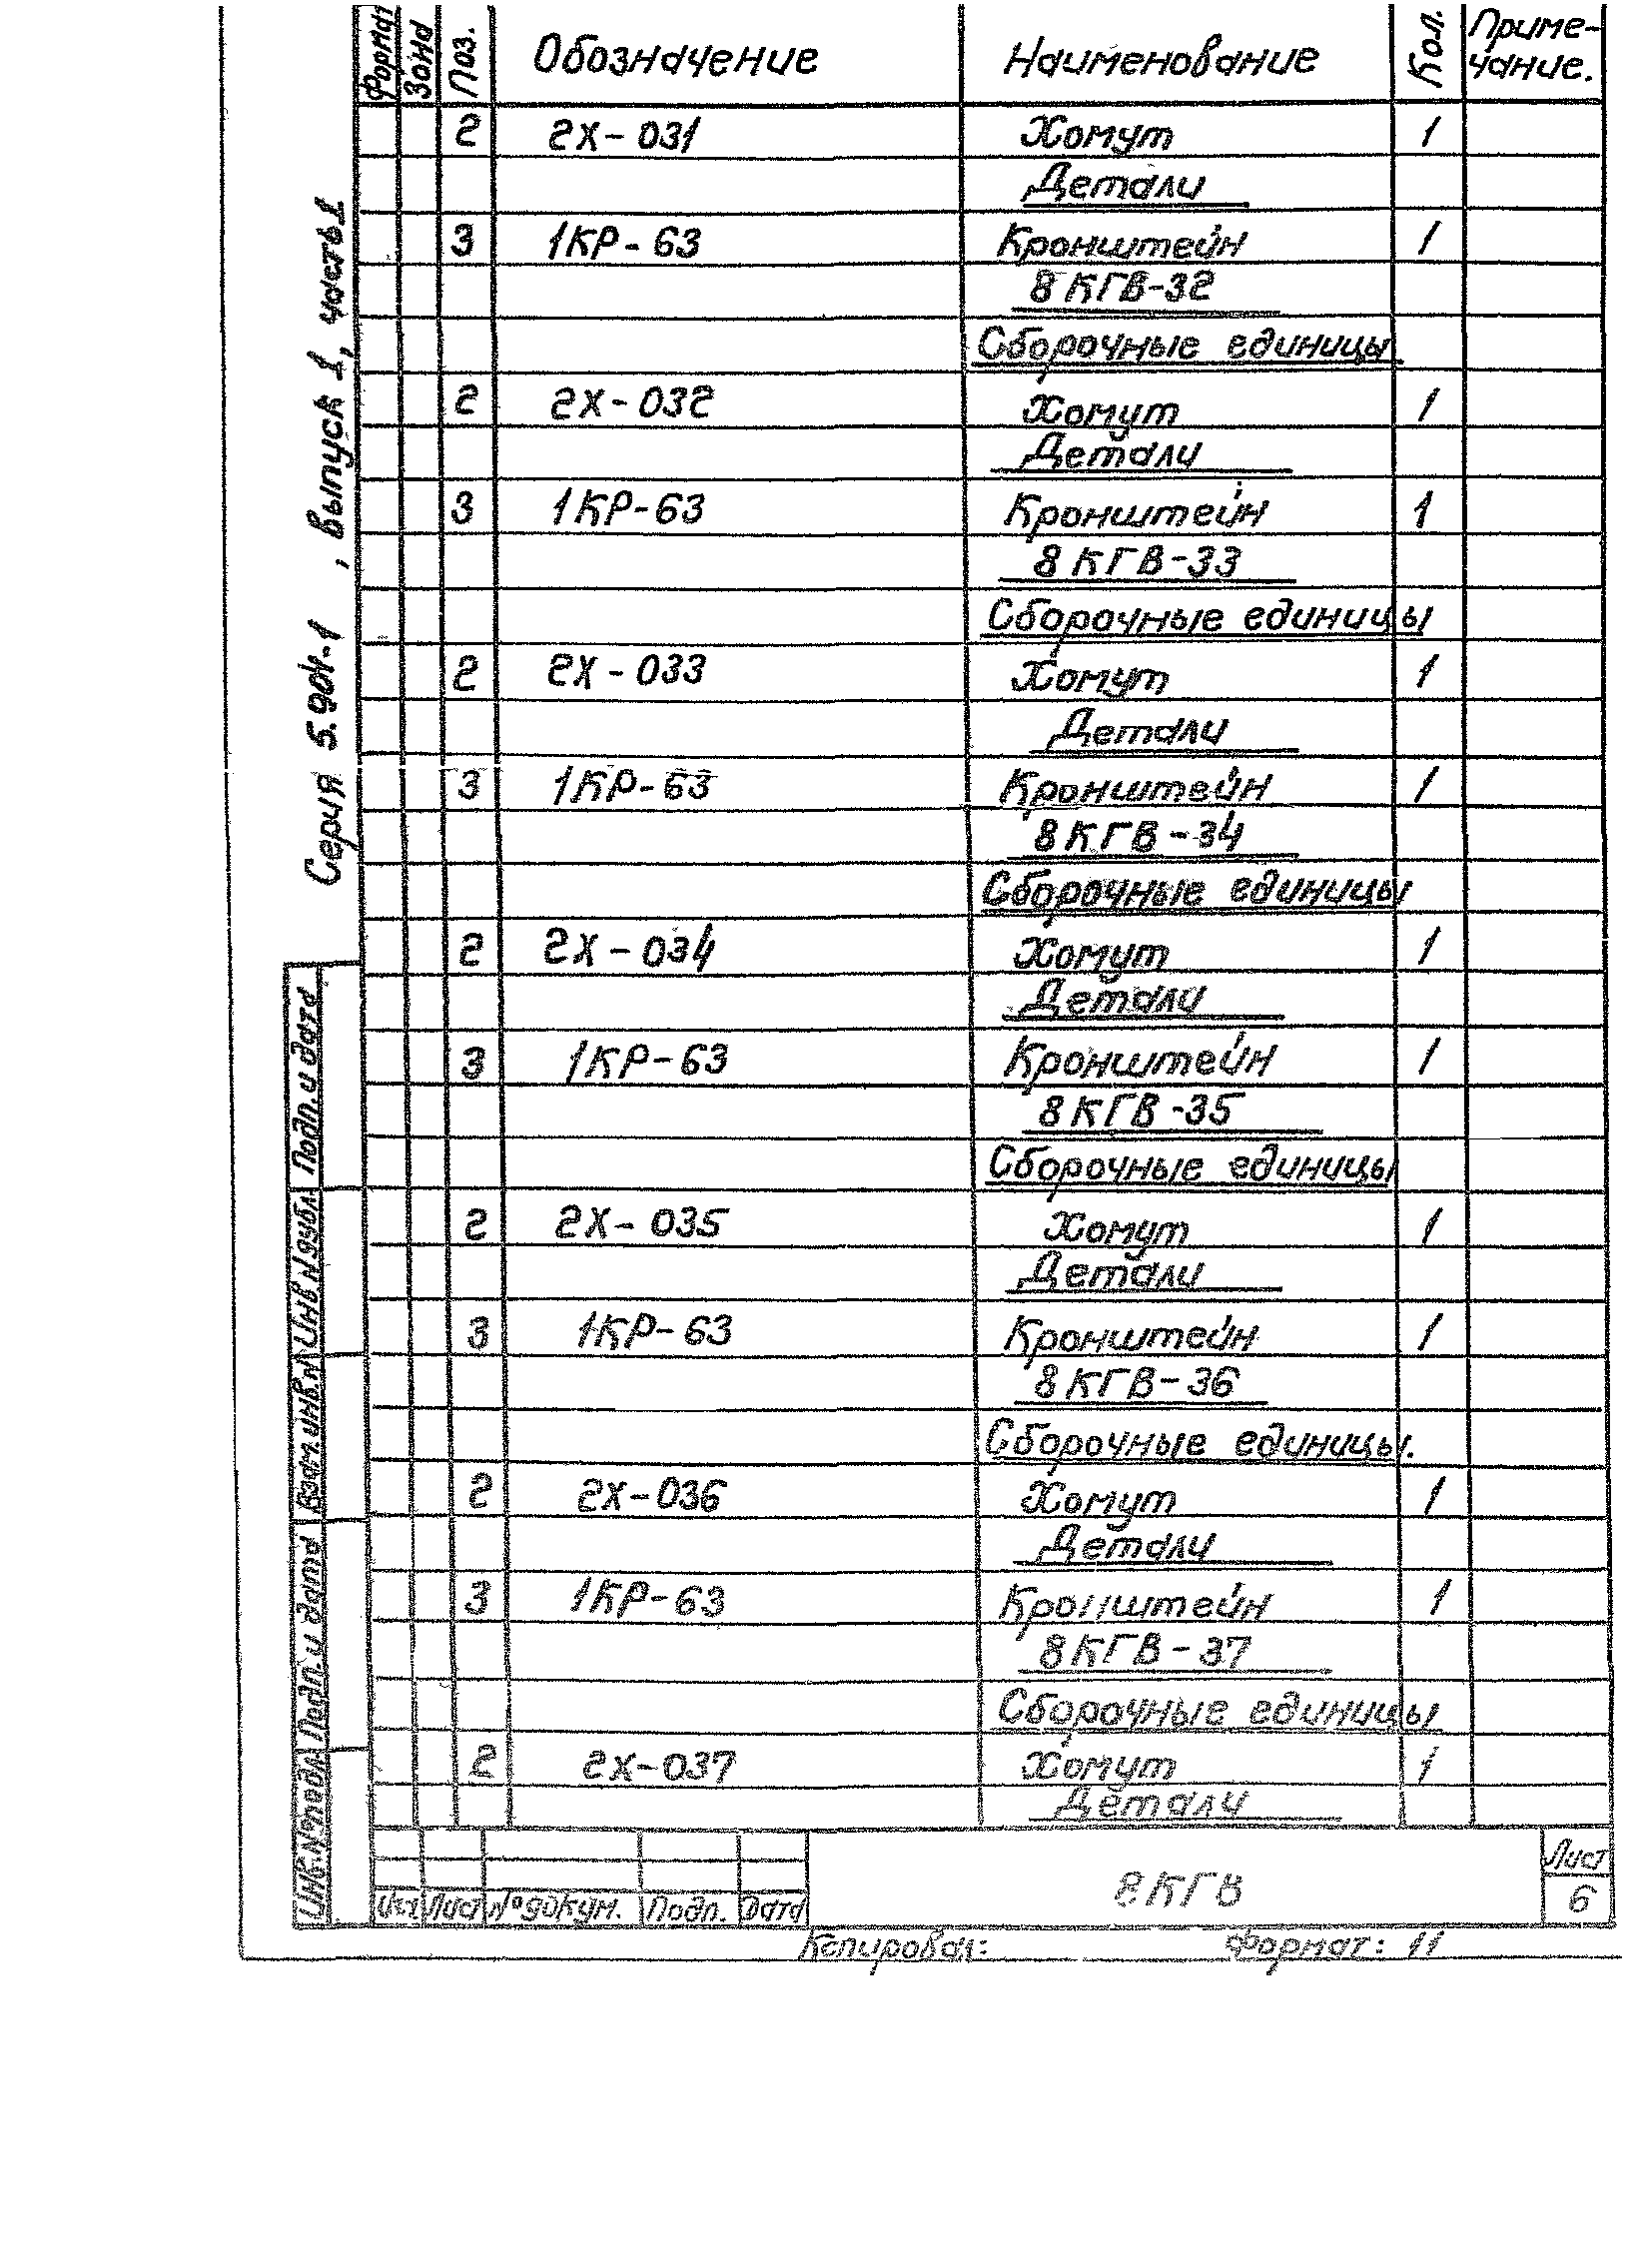 Формат Зона Поз. Обозначение Наименование Кол. Приме-
чание.
2 2Х-031 Хомут 1
Детали
3 1КР-63 Кронштейн 1
8КГВ-32
Сборочные единицы
2 2Х-032 Хомут 1
Детали
3 1КР-63 Кронштейн 1
8КГВ-33
Сборочные единицы
2 2Х-033 Хомут 1
Детали
3 1КР-63 Кронштейн 1
8КГВ-34
Сборочные единицы
2 2Х-034 Хомут 1
Детали
3 1КР-63 Кронштейн 1
8КГВ-35
Сборочные единицы
2 2Х-035 Хомут 1
Детали
3 1КР-63 Кронштейн 1
8КГВ-36
Сборочные единицы.
2 2Х-036 Хомут 1
Детали
3 1КР-63 Кронштейн 1
8КГВ-37
Сборочные единицы
2 2Х-037 Хомут 1
Детали
Серия 5.904-1 , выпуск 1, часть1
Подп. и дата
Инв N дубл.
Взам. инв. N
Подп. и дата
Инв. N°подл.
Изм Лист N°докум. Подп. Дата
8КГВ
Лист
6
Копировал: Формат: 11